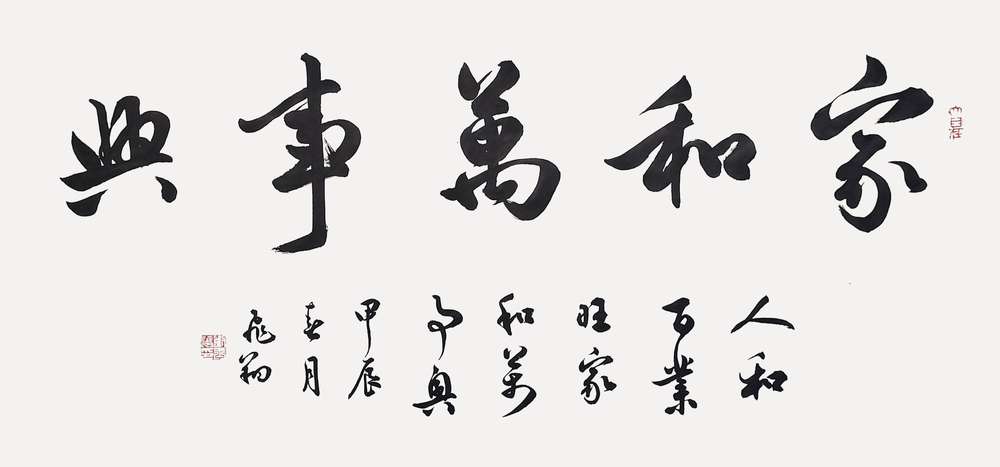 家和萬事興
人和
百業
旺家
和万
事興
甲辰
春月
飛翔